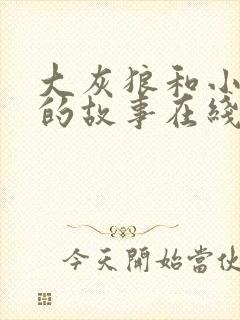 大灰狼和小
的故事在綫
今天開始當伙